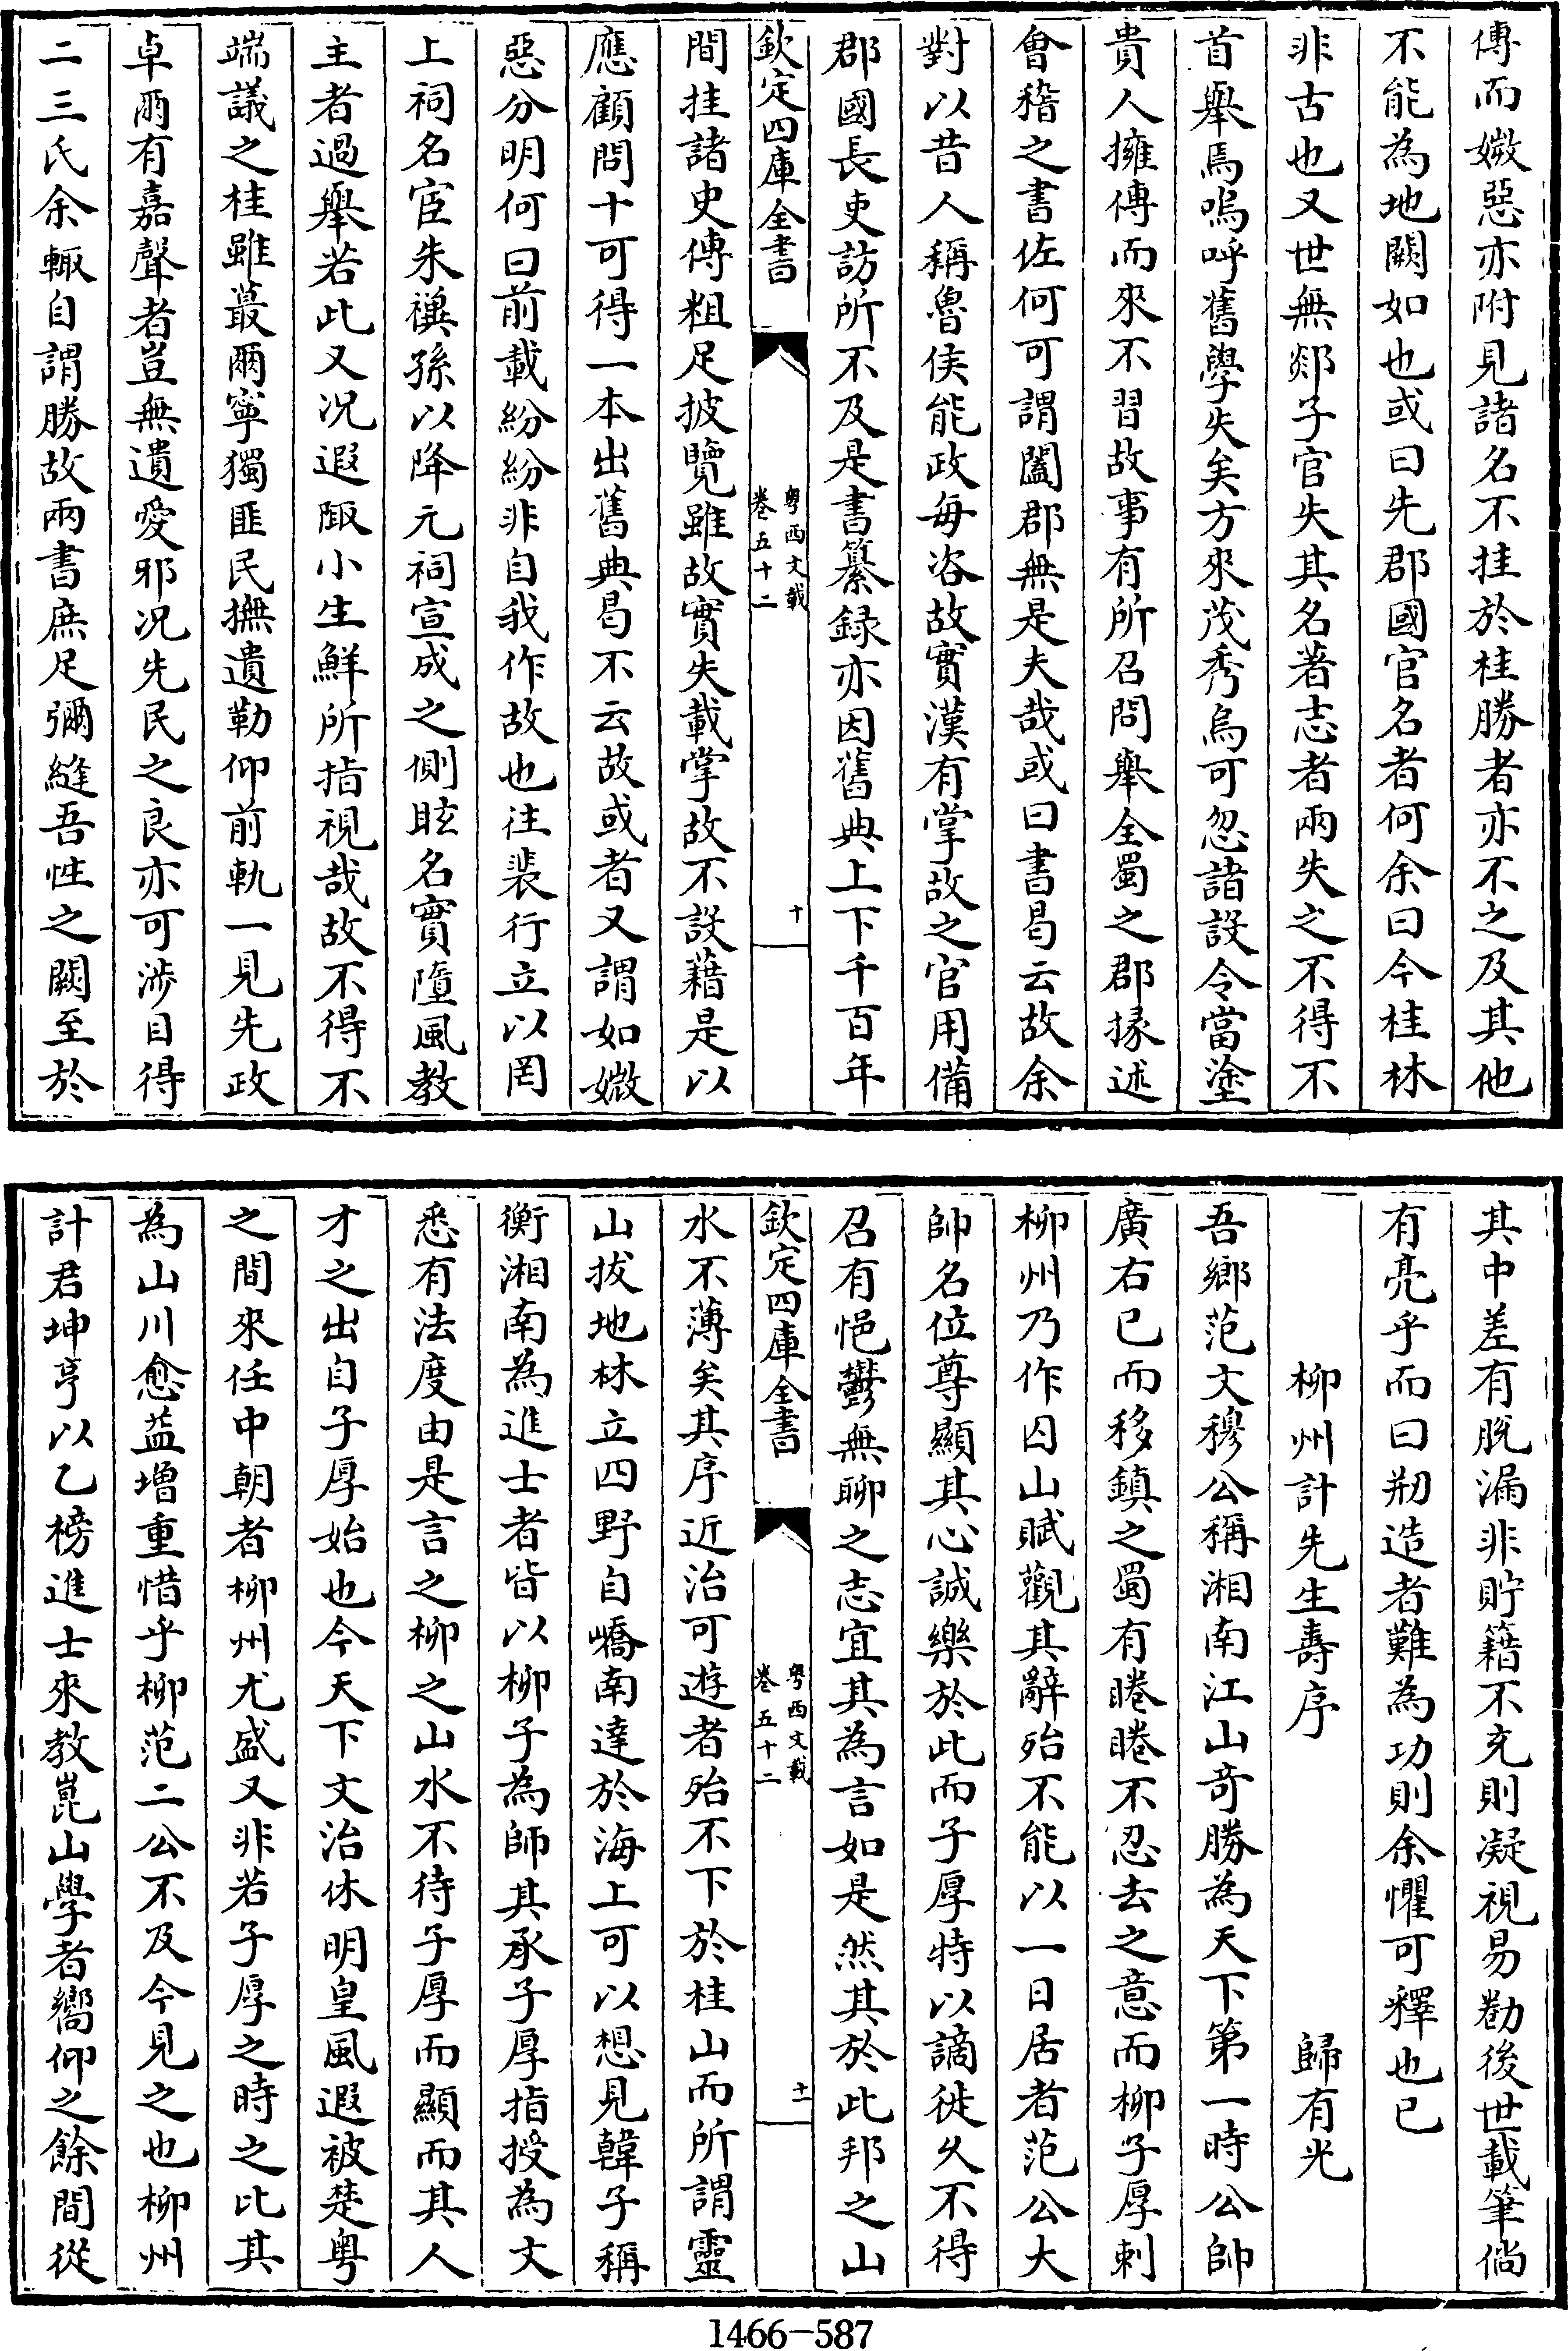 傳而媺惡亦附見諸名不挂於桂勝者亦不之及其他
不能為地闕如也或曰先郡國官名者何余曰今桂林
非古也又世無郯子官失其名著志者兩失之不得不
首舉焉嗚呼舊學失矣方來茂秀烏可忽諸設令當塗
貴人擁傳而來不習故事有所召問舉全蜀之郡掾述
會稽之書佐何可謂闔郡無是夫哉或曰書曷云故余
對以昔人稱魯侯能政每咨故實漢有掌故之官用備
郡國長吏訪所不及是書纂録亦因舊典上下千百年
欽定四庫全書
粤西文載
卷五十二
十
間挂諸史傳粗足披覽雖故實失載掌故不設藉是以
應顧問十可得一本出舊典曷不云故或者又謂如媺
惡分明何曰前載紛紛非自我作故也往裴行立以罔
上祠名宦朱禩孫以降元祠宣成之側眩名實墮風教
主者過舉若此又况遐陬小生鮮所指視哉故不得不
端議之桂雖蕞爾寧獨匪民撫遺勒仰前軌一見先政
卓爾有嘉聲者豈無遺愛邪况先民之良亦可渉目得
二三氏余輙自謂勝故兩書庶足彌縫吾性之闕至於
其中差有脱漏非貯籍不充則凝視易勌後世載筆倘
有亮乎而曰刱造者難為功則余懼可釋也已
柳州計先生壽序　歸有光
吾鄉范文穆公稱湘南江山竒勝為天下第一時公帥
廣右已而移鎮之蜀有睠睠不忍去之意而柳子厚刺
柳州乃作囚山賦觀其辭殆不能以一日居者范公大
帥名位尊顯其心誠樂於此而子厚特以謫徙久不得
召有悒鬱無聊之志宜其為言如是然其於此邦之山
欽定四庫全書
粤西文載
卷五十二
十一
水不薄矣其序近治可遊者殆不下於桂山而所謂靈
山拔地林立四野自嶠南達於海上可以想見韓子稱
衡湘南為進士者皆以柳子為師其承子厚指授為文
悉有法度由是言之柳之山水不待子厚而顯而其人
才之出自子厚始也今天下文治休明皇風遐被楚粤
之間來任中朝者柳州尤盛又非若子厚之時之比其
為山川愈益增重惜乎柳范二公不及今見之也柳州
計君坤亨以乙榜進士來教崑山學者嚮仰之餘間從
1466-587